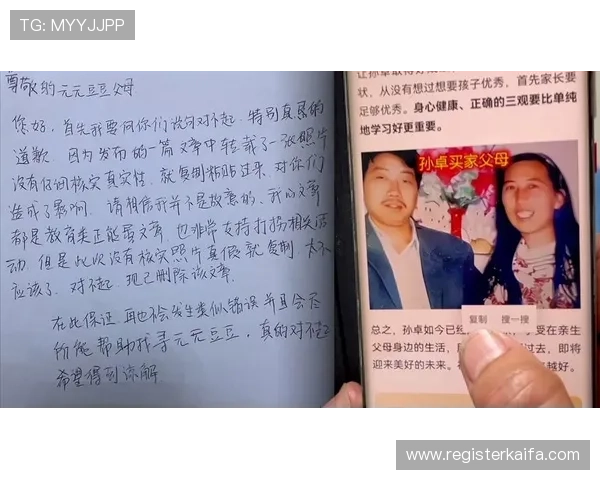 TG: MYYJJPP
尊敬的元元豆豆父母
您好，首先我要向你们说句对不起，特别真恳的
道歉，因为发布的一篇文章中转载了一张照片
没有仔细核实真实性，就复制粘贴过来，对你们
造成了影响，请相信我并不是故意的，我的文章
都是教育类正能量文章，也非常支持打拐相关活
动，但是此次没有核实照片真假就复制，太不
应该了，对不起，现已删除该文章。
在此保证，再也不会发生类似错误并且会尽
所能帮助找寻元元豆豆，真的对不起
希望得到谅解
让孙卓取得好成
状，从没有想过想要孩子优秀，首先家长要
足够优秀。身心健康、正确的三观要比单纯
地学习好更重要。
孙卓买家父母
复制 搜一搜
总之，孙卓如今已经 受在亲生
父母身边的生活， 过去，即将
迎来美好的未来。 越好。
www.registerkaifa.com